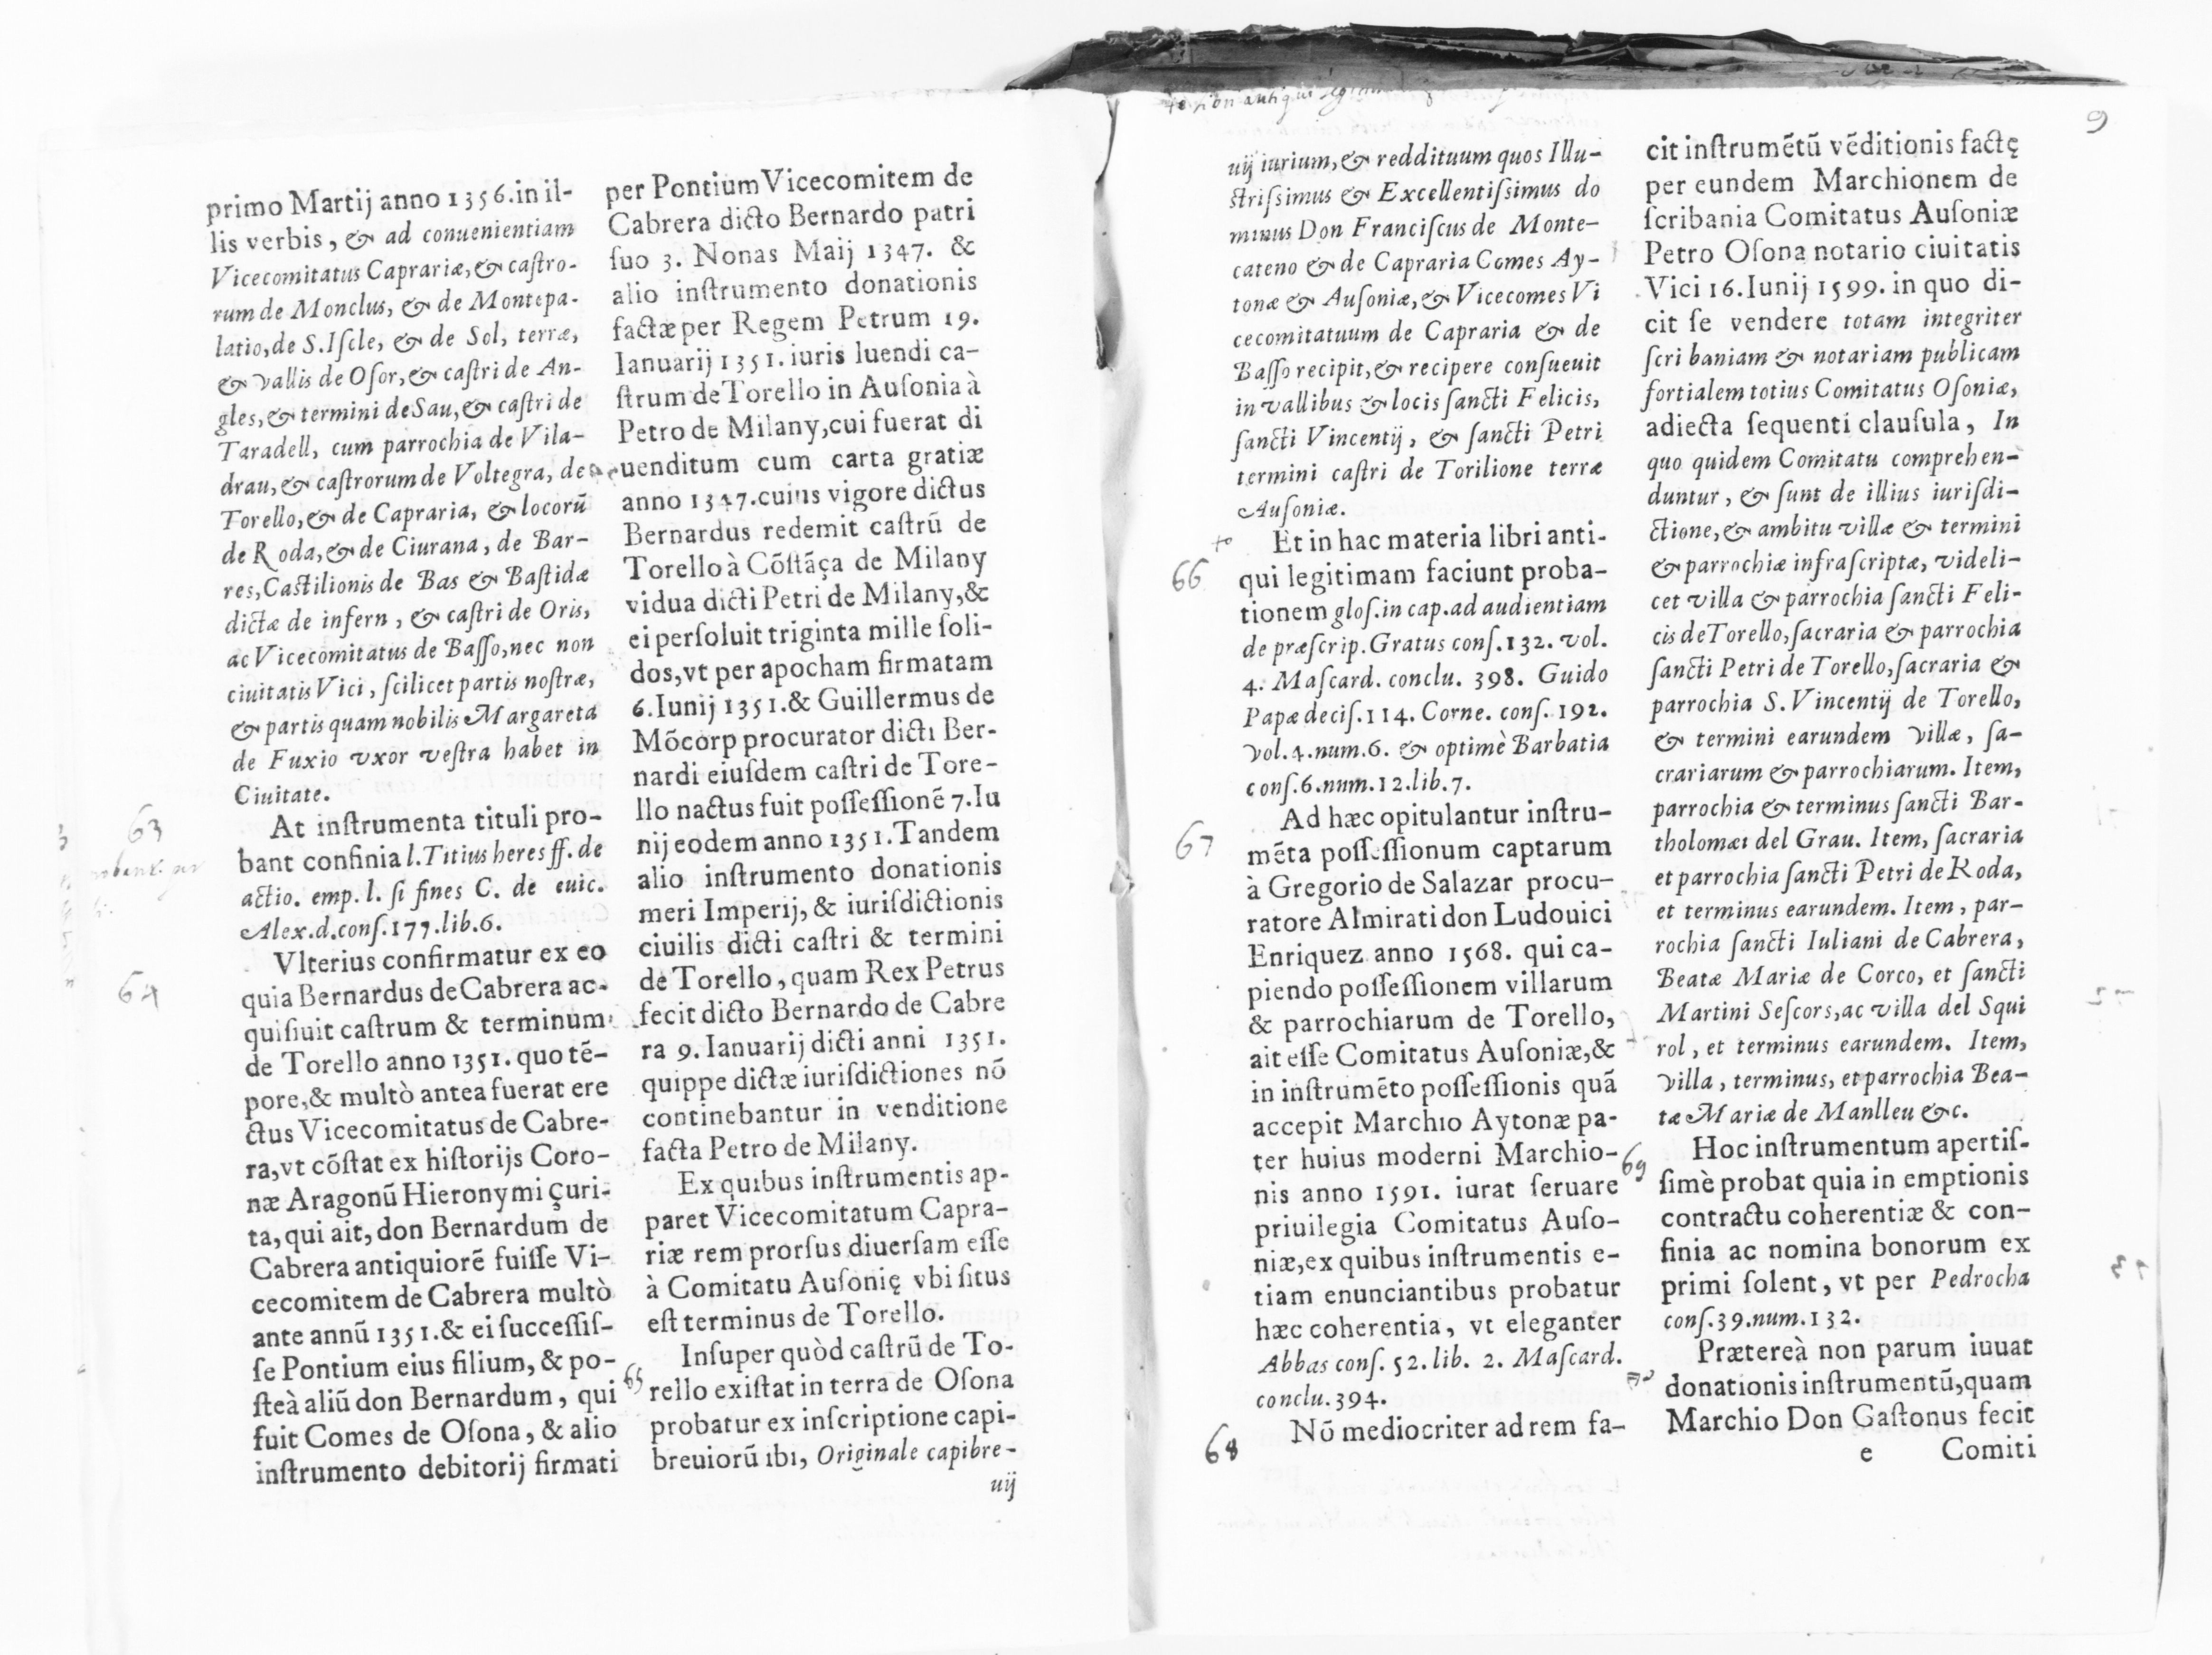 primo Martij anno 1356. in il-
lis verbis, & ad conuenientiam
Vicecomitatus Caprariæ, & caſtro-
rum de Monclus, & de Montepa-
latio, de S. Iſcle, & de Sol, terræ,
& vallis de Oſor, & caſtri de An-
gles, & termini de Sau, & caſtri de
Taradell, cum parrochia de Vila-
drau, & caſtrorum de Voltegra, de
Torello, & de Capraria, & locorū
de Roda, & de Ciurana, de Bar-
res, Caſtilionis de Bas & Baſtidæ
dictæ de infern, & caſtri de Oris,
ac Vicecomitatus de Baſſo, nec non
ciuitatis Vici, ſcilicet partis noſtræ,
& partis quam nobilis Margareta
de Fuxio vxor veſtra habet in
Ciuitate.
63
At inſtrumenta tituli pro-
bant confinia l. Titius heres ff. de
actio. emp. l. ſi fines C. de euic.
Alex. d. conſ. 177. lib. 6.
64
Vlterius confirmatur ex eo
quia Bernardus de Cabrera ac-
quiſiuit caſtrum & terminum
de Torello anno 1351. quo tē-
pore, & multò antea fuerat ere
ctus Vicecomitatus de Cabre-
ra, vt cōſtat ex hiſtorijs Coro-
næ Aragonū Hieronymi Çuri-
ta, qui ait, don Bernardum de
Cabrera antiquiorē fuiſſe Vi-
cecomitem de Cabrera multò
ante annū 1351. & ei ſucceſſiſ-
ſe Pontium eius filium, & po-
ſteà aliū don Bernardum, qui
fuit Comes de Oſona, & alio
inſtrumento debitorij firmati
per Pontium Vicecomitem de
Cabrera dicto Bernardo patri
ſuo 3. Nonas Maij 1347. &
alio inſtrumento donationis
factæ per Regem Petrum 19.
Ianuarij 1351. iuris luendi ca-
ſtrum de Torello in Auſonia à
Petro de Milany, cui fuerat di
uenditum cum carta gratiæ
anno 1347. cuius vigore dictus
Bernardus redemit caſtrū de
Torello à Cōſtāça de Milany
vidua dicti Petri de Milany, &
ei perſoluit triginta mille ſoli-
dos, vt per apocham firmatam
6. Iunij 1351. & Guillermus de
Mōcorp procurator dicti Ber-
nardi eiuſdem caſtri de Tore-
llo nactus fuit poſſeſſionē 7. Iu
nij eodem anno 1351. Tandem
alio inſtrumento donationis
meri Imperij, & iuriſdictionis
ciuilis dicti caſtri & termini
de Torello, quam Rex Petrus
fecit dicto Bernardo de Cabre
ra 9. Ianuarij dicti anni 1351.
quippe dictæ iuriſdictiones nō
continebantur in venditione
facta Petro de Milany.
Ex quibus inſtrumentis ap-
paret Vicecomitatum Capra-
riæ rem prorſus diuerſam eſſe
à Comitatu Auſonię vbi ſitus
eſt terminus de Torello.
65
Inſuper quòd caſtrū de To-
rello exiſtat in terra de Oſona
probatur ex inſcriptione capi-
breuiorū ibi, Originale capibre-
uij
9
uij iurium, & reddituum quos Illu-
ſtriſsimus & Excellentiſsimus do
minus Don Franciſcus de Monte-
cateno & de Capraria Comes Ay-
tonæ & Auſoniæ, & Vicecomes Vi
cecomitatuum de Capraria & de
Baſſo recipit, & recipere conſueuit
in vallibus & locis ſancti Felicis,
ſancti Vincentij, & ſancti Petri
termini caſtri de Torilione terræ
Auſoniæ.
66
Et in hac materia libri anti-
qui legitimam faciunt proba-
tionem gloſ. in cap. ad audientiam
de præſcrip. Gratus conſ. 132. vol.
4. Maſcard. conclu. 398. Guido
Papæ deciſ. 114. Corne. conſ. 192.
vol. 4. num. 6. & optimè Barbatia
conſ. 6. num. 12. lib. 7.
67
Ad hæc opitulantur inſtru-
mēta poſſeſſionum captarum
à Gregorio de Salazar procu-
ratore Almirati don Ludouici
Enriquez anno 1568. qui ca-
piendo poſſeſſionem villarum
& parrochiarum de Torello,
ait eſſe Comitatus Auſoniæ, &
in inſtrumēto poſſeſſionis quā
accepit Marchio Aytonæ pa-
ter huius moderni Marchio-
nis anno 1591. iurat ſeruare
priuilegia Comitatus Auſo-
niæ, ex quibus inſtrumentis e-
tiam enunciantibus probatur
hæc coherentia, vt eleganter
Abbas conſ. 52. lib. 2. Maſcard.
conclu. 394.
68
Nō mediocriter ad rem fa-
cit inſtrumētū vēditionis factę
per eundem Marchionem de
ſcribania Comitatus Auſoniæ
Petro Oſona notario ciuitatis
Vici 16. Iunij 1599. in quo di-
cit ſe vendere totam integriter
ſcri baniam & notariam publicam
fortialem totius Comitatus Oſoniæ,
adiecta ſequenti clauſula, In
quo quidem Comitatu comprehen-
duntur, & ſunt de illius iuriſdi-
ctione, & ambitu villæ & termini
& parrochiæ infraſcriptæ, videli-
cet villa & parrochia ſancti Feli-
cis de Torello, ſacraria & parrochia
ſancti Petri de Torello, ſacraria &
parrochia S. Vincentij de Torello,
& termini earundem villæ, ſa-
crariarum & parrochiarum. Item,
parrochia & terminus ſancti Bar-
tholomæi del Grau. Item, ſacraria
et parrochia ſancti Petri de Roda,
et terminus earundem. Item, par-
rochia ſancti Iuliani de Cabrera,
Beatæ Mariæ de Corco, et ſancti
Martini Seſcors, ac villa del Squi
rol, et terminus earundem. Item,
villa, terminus, et parrochia Bea-
tæ Mariæ de Manlleu &c.
69
Hoc inſtrumentum apertiſ-
ſimè probat quia in emptionis
contractu coherentiæ & con-
finia ac nomina bonorum ex
primi ſolent, vt per Pedrocha
conſ. 39. num. 132.
Prætereà non parum iuuat
donationis inſtrumentū, quam
Marchio Don Gaſtonus fecit
e Comiti